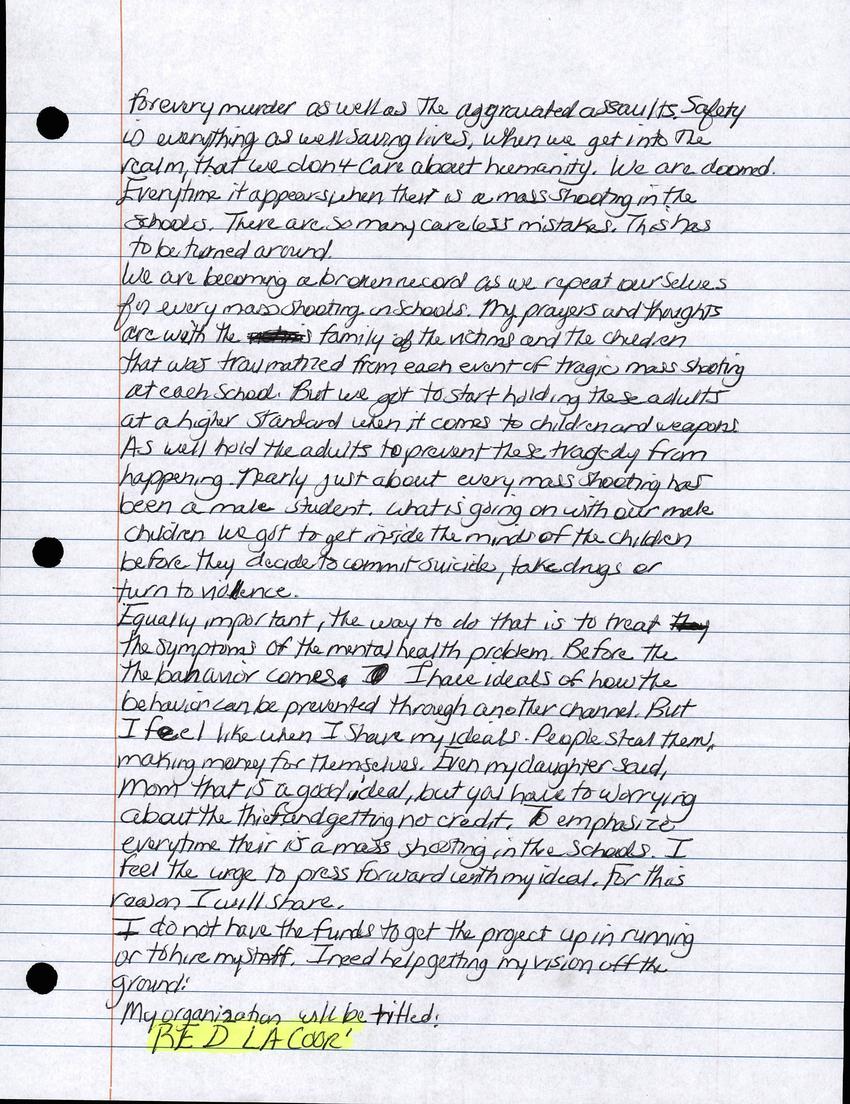 for every murder as well as The aggravated assaults. Safety
is everything as well saving lives, when we get into The
realm, that we don4 care about humanity. We are doomed.
Everytime it appears, when their is a mass shooting in the
schools. There are so many careless mistakes. This has
to be turned around.
We are becoming a broken record as we repeat ourselves
for every mass shooting in schools. My prayers and thoughts
are with the family of the victims and the children
that was traumatized from each event of tragic mass shooting
at each school. But we got to start holding these adults
at a higher standard when it comes to children and weapons.
As well hold the adults to prevent these tragedy from
happening. Nearly just about every mass shooting has
been a male student. what is going on with our male
children we got to get inside the minds of the children
before they decide to commit suicide, take drugs or
turn to violence.
Equally important, the way to do that is to treat
the symptoms of the mental health problem. Before the
the behavior comes. I have ideals of how the
behavior can be prevented through another channel. But
I feel like when I share my ideals. People steal them,
making money for themselves. Even my daughter said,
Mom that is a good ideal, but you have to worrying
about the thief and getting no credit. To emphasize
everytime their is a mass shooting in the schools. I
feel the urge to press forward with my ideal. For this
reason I will share.
I do not have the funds to get the project up in running
or to hire my staff. I need help getting my vision off the
ground:
My organization will be titled:
RED LA COOR'